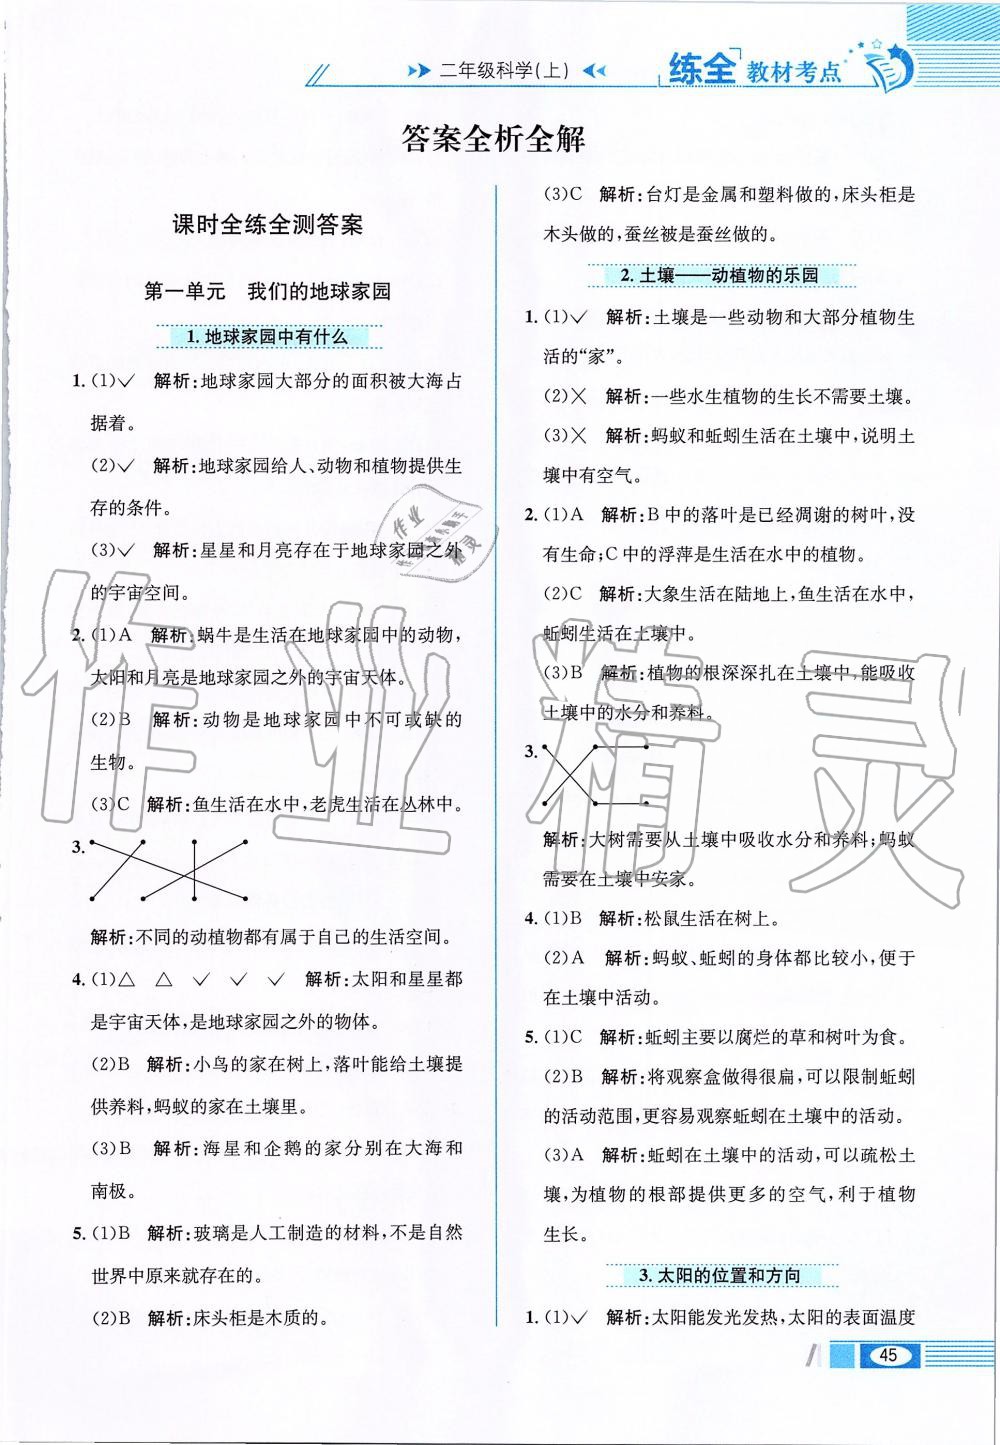 二年级科学(上)
练全 教材考点
答案全析全解
课时全练全测答案
第一单元 我们的地球家园
1. 地球家园中有什么
1. (1)✓ 解析:地球家园大部分的面积被大海占
据着。
(2)✓ 解析:地球家园给人、动物和植物提供生
存的条件。
(3)✓ 解析:星星和月亮存在于地球家园之外
的宇宙空间。
2. (1)A 解析:蜗牛是生活在地球家园中的动物,
太阳和月亮是地球家园之外的宇宙天体。
(2)B 解析:动物是地球家园中不可或缺的
生物。
(3)C 解析:鱼生活在水中,老虎生活在丛林中。
3.
解析:不同的动植物都有属于自己的生活空间。
4. (1)△ △ ✓ ✓ ✓ 解析:太阳和星星都
是宇宙天体,是地球家园之外的物体。
(2)B 解析:小鸟的家在树上,落叶能给土壤提
供养料,蚂蚁的家在土壤里。
(3)B 解析:海星和企鹅的家分别在大海和
南极。
5. (1)B 解析:玻璃是人工制造的材料,不是自然
世界中原来就存在的。
(2)B 解析:床头柜是木质的。
(3)C 解析:台灯是金属和塑料做的,床头柜是
木头做的,蚕丝被是蚕丝做的。
2. 土壤——动植物的乐园
1. (1)✓ 解析:土壤是一些动物和大部分植物生
活的“家”。
(2)✕ 解析:一些水生植物的生长不需要土壤。
(3)✕ 解析:蚂蚁和蚯蚓生活在土壤中,说明土
壤中有空气。
2. (1)A 解析:B中的落叶是已经凋谢的树叶,没
有生命;C中的浮萍是生活在水中的植物。
(2)C 解析:大象生活在陆地上,鱼生活在水中,
蚯蚓生活在土壤中。
(3)B 解析:植物的根深深扎在土壤中,能吸收
土壤中的水分和养料。
3.
解析:大树需要从土壤中吸收水分和养料;蚂蚁
需要在土壤中安家。
4. (1)B 解析:松鼠生活在树上。
(2)A 解析:蚂蚁、蚯蚓的身体都比较小,便于
在土壤中活动。
5. (1)C 解析:蚯蚓主要以腐烂的草和树叶为食。
(2)B 解析:将观察盒做得很扁,可以限制蚯蚓
的活动范围,更容易观察蚯蚓在土壤中的活动。
(3)A 解析:蚯蚓在土壤中的活动,可以疏松土
壤,为植物的根部提供更多的空气,利于植物
生长。
3. 太阳的位置和方向
1. (1)✓ 解析:太阳能发光发热,太阳的表面温度
45
作业精灵